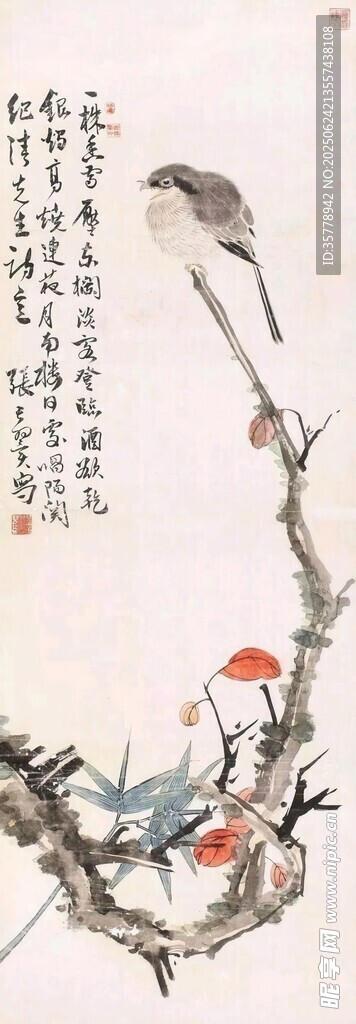 一株香雪压东栏淡客登临酒欲乾
银烛高烧连夜月南楼日暮唱阳关
纪清先生訪定
張書
ID:35778942 NO:20250624213557438108
昵享网 www.nipic.cn